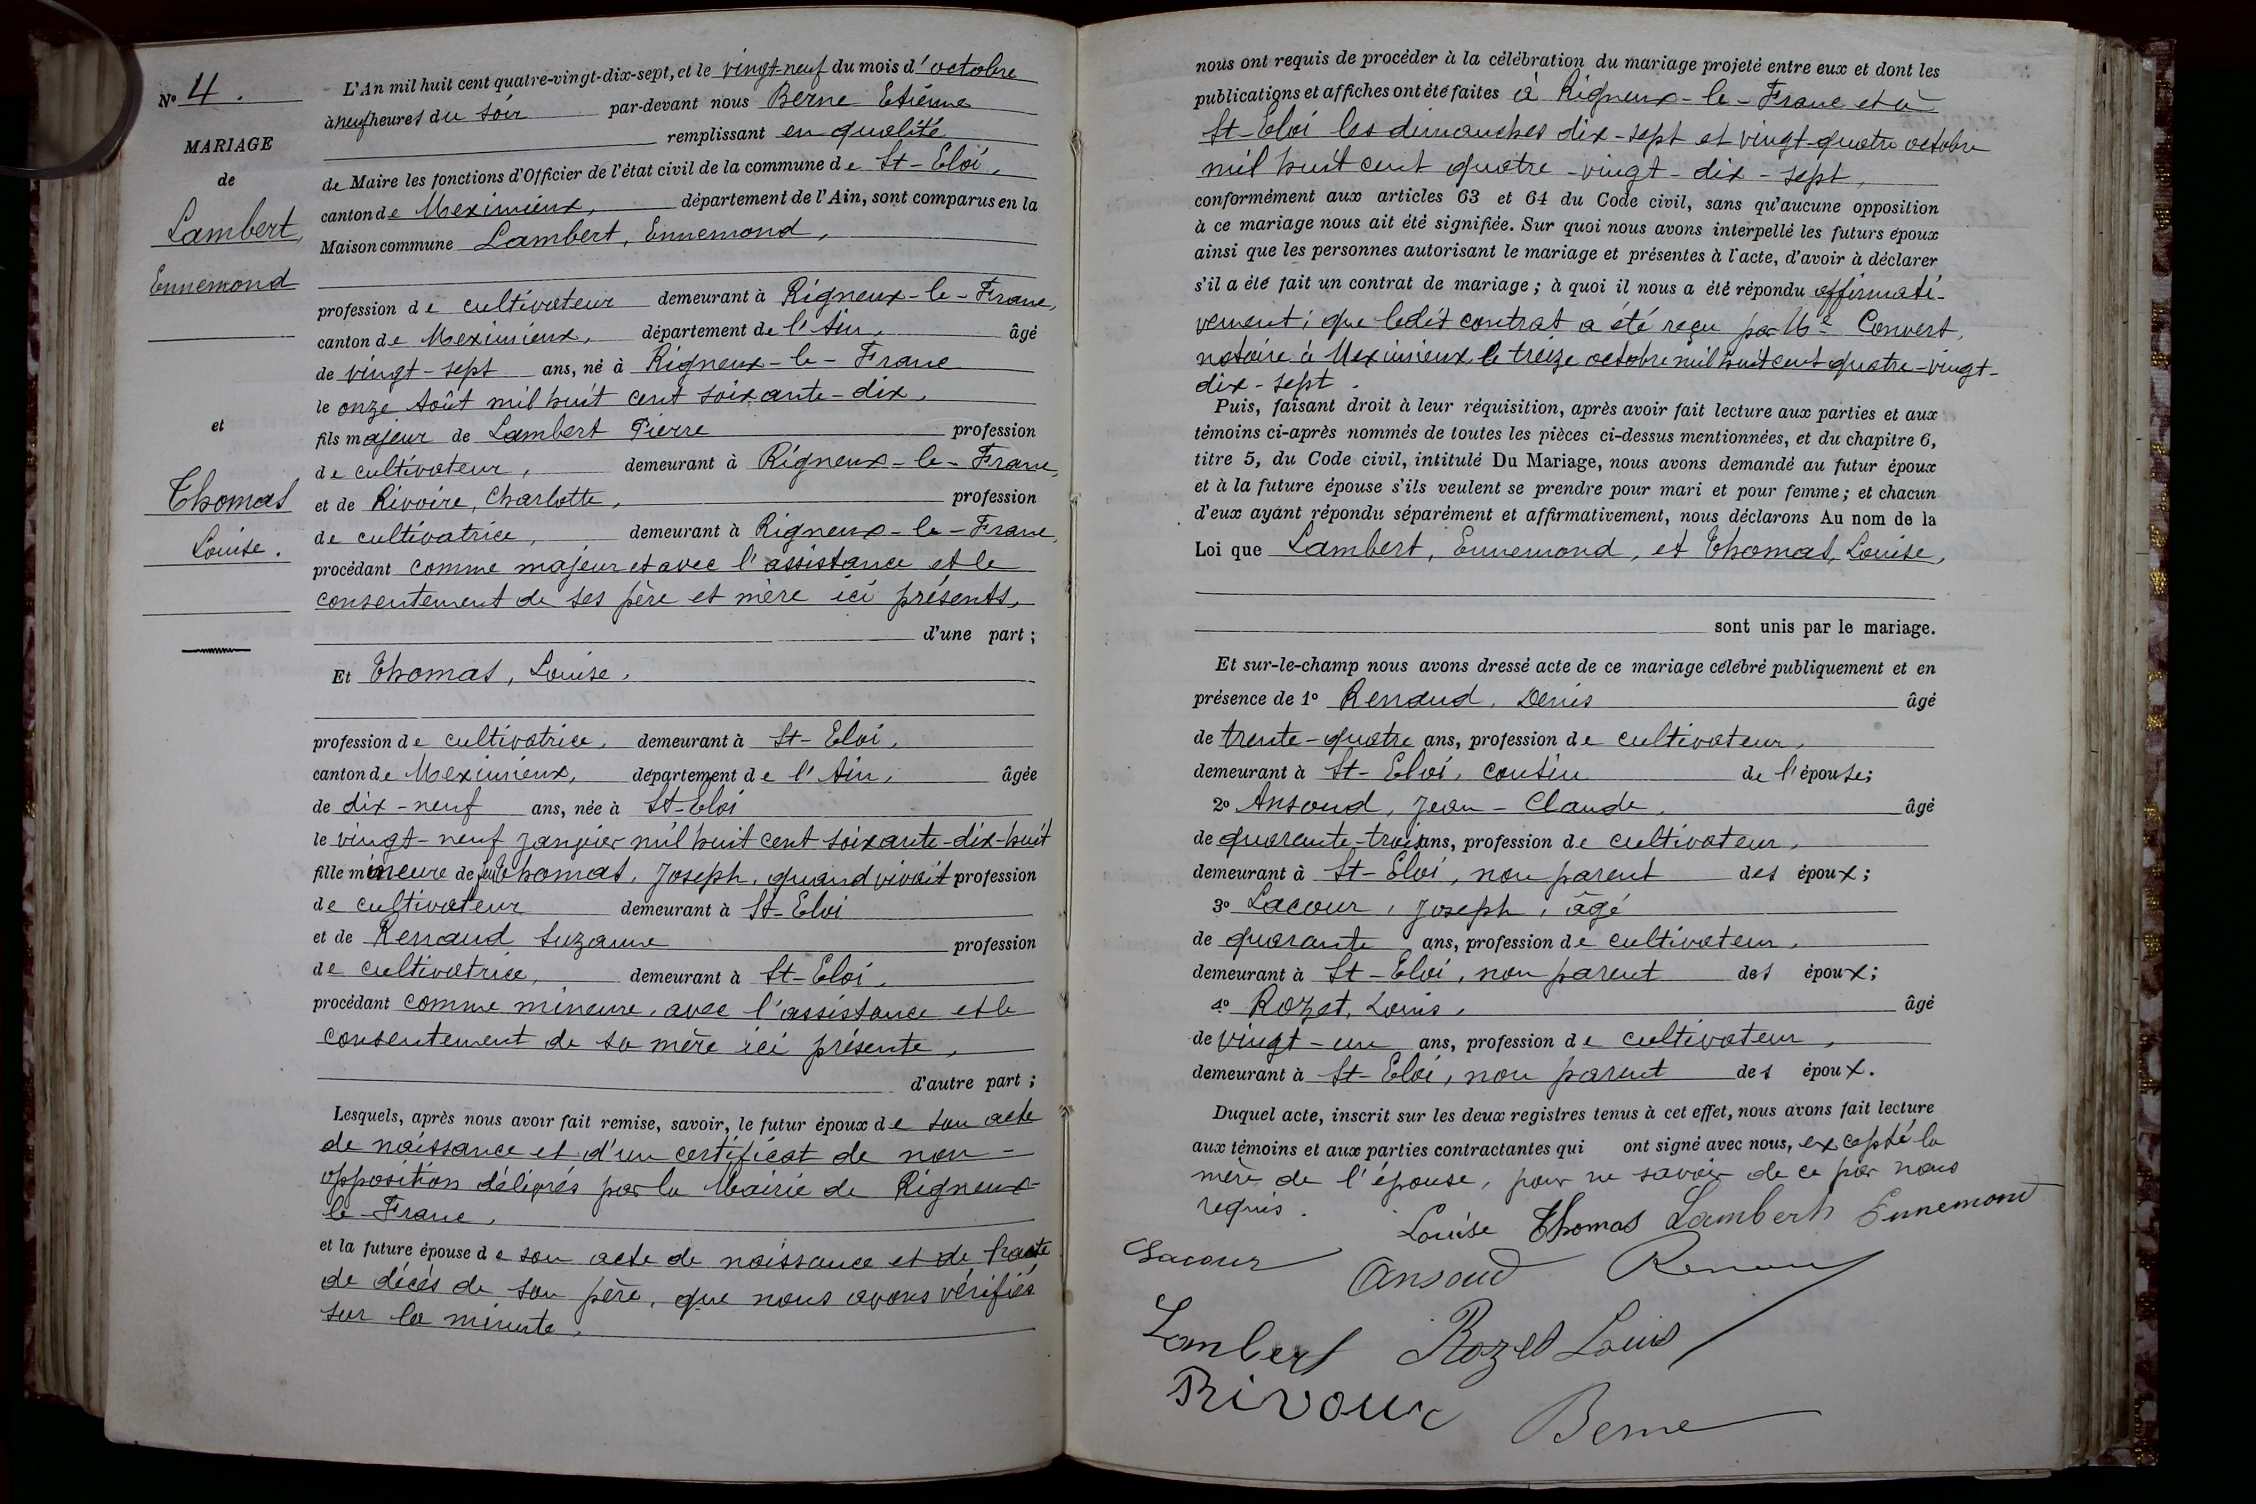 No 4.
MARIAGE
de
Lambert,
Ennemond
et
Thomas
Louise.
L'An mil huit cent quatre-vingt-dix-sept, et le vingt-neuf du mois d'octobre
à neuf heures du soir par-devant nous Berne Etienne
remplissant en qualité
de Maire les fonctions d'Officier de l'état civil de la commune de St-Eloi,
canton de Meximieux, département de l'Ain, sont comparus en la
Maison commune Lambert, Ennemond,
profession de cultivateur demeurant à Rigneux-le-Franc,
canton de Meximieux, département de l'Ain, âgé
de vingt-sept ans, né à Rigneux-le-Franc
le onze Août mil huit cent soixante-dix,
fils majeur de Lambert Pierre profession
de cultivateur, demeurant à Rigneux-le-Franc,
et de Rivoire, Charlotte, profession
de cultivatrice, demeurant à Rigneux-le-Franc,
procédant comme majeur et avec l'assistance et le
consentement de ses père et mère ici présents,
d'une part;
Et Thomas, Louise,
profession de cultivatrice, demeurant à St-Eloi,
canton de Meximieux, département de l'Ain, âgée
de dix-neuf ans, née à St-Eloi
le vingt-neuf Janvier mil huit cent soixante-dix-huit
fille mineure de feu Thomas, Joseph, quand vivait profession
de cultivateur demeurant à St-Eloi
et de Renaud Suzanne profession
de cultivatrice, demeurant à St-Eloi,
procédant comme mineure, avec l'assistance et le
consentement de sa mère ici présente,
d'autre part;
Lesquels, après nous avoir fait remise, savoir, le futur époux de son acte
de naissance et d'un certificat de non-
opposition délivrés par la Mairie de Rigneux-
le-Franc,
et la future épouse de son acte de naissance et de l'acte
de décès de son père, que nous avons vérifiés
sur la minute,
nous ont requis de procéder à la célébration du mariage projeté entre eux et dont les
publications et affiches ont été faites à Rigneux-le-Franc et à
St-Eloi les dimanches dix-sept et vingt-quatre octobre
mil huit cent quatre-vingt-dix-sept,
conformément aux articles 63 et 64 du Code civil, sans qu'aucune opposition
à ce mariage nous ait été signifiée. Sur quoi nous avons interpellé les futurs époux
ainsi que les personnes autorisant le mariage et présentes à l'acte, d'avoir à déclarer
s'il a été fait un contrat de mariage; à quoi il nous a été répondu affirmati-
vement; que ledit contrat a été reçu par Me Convert,
notaire à Meximieux, le treize octobre mil huit cent quatre-vingt-
dix-sept.
Puis, faisant droit à leur réquisition, après avoir fait lecture aux parties et aux
témoins ci-après nommés de toutes les pièces ci-dessus mentionnées, et du chapitre 6,
titre 5, du Code civil, intitulé Du Mariage, nous avons demandé au futur époux
et à la future épouse s'ils veulent se prendre pour mari et pour femme; et chacun
d'eux ayant répondu séparément et affirmativement, nous déclarons Au nom de la
Loi que Lambert, Ennemond, et Thomas, Louise,
sont unis par le mariage.
Et sur-le-champ nous avons dressé acte de ce mariage célébré publiquement et en
présence de 1o Renaud, Denis âgé
de trente-quatre ans, profession de cultivateur,
demeurant à St-Eloi, cousin de l'épouse;
2o Ansoud, Jean-Claude, âgé
de quarante-trois ans, profession de cultivateur,
demeurant à St-Eloi, non parent des époux;
3o Lacour, Joseph, âgé
de quarante ans, profession de cultivateur,
demeurant à St-Eloi, non parent des époux;
4o Rozet, Louis, âgé
de vingt-un ans, profession de cultivateur,
demeurant à St-Eloi, non parent des époux.
Duquel acte, inscrit sur les deux registres tenus à cet effet, nous avons fait lecture
aux témoins et aux parties contractantes qui ont signé avec nous, excepté la
mère de l'épouse, pour ne savoir de ce par nous
requis.
Louise Thomas Lambert Ennemond
Lacour Ansoud Renaud
Lambert Rozet Louis
Rivoire Berne